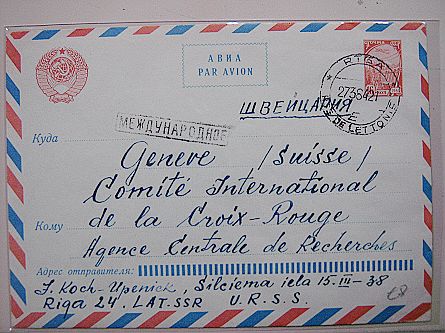 АВИА
PAR AVION
RIGA
2736421
DE LETTONIE
ШВЕЙЦАРИЯ
МЕЖДУНАРОДНОЕ
Куда
Geneve / Suisse /
Comité International
Кому
de la Croix-Rouge
Agence Centrale de Recherches
Адрес отправителя:
J. Koch-Upeniek, Silciema iela 15.III-38
Riga 24. LAT.SSR U.R.S.S.